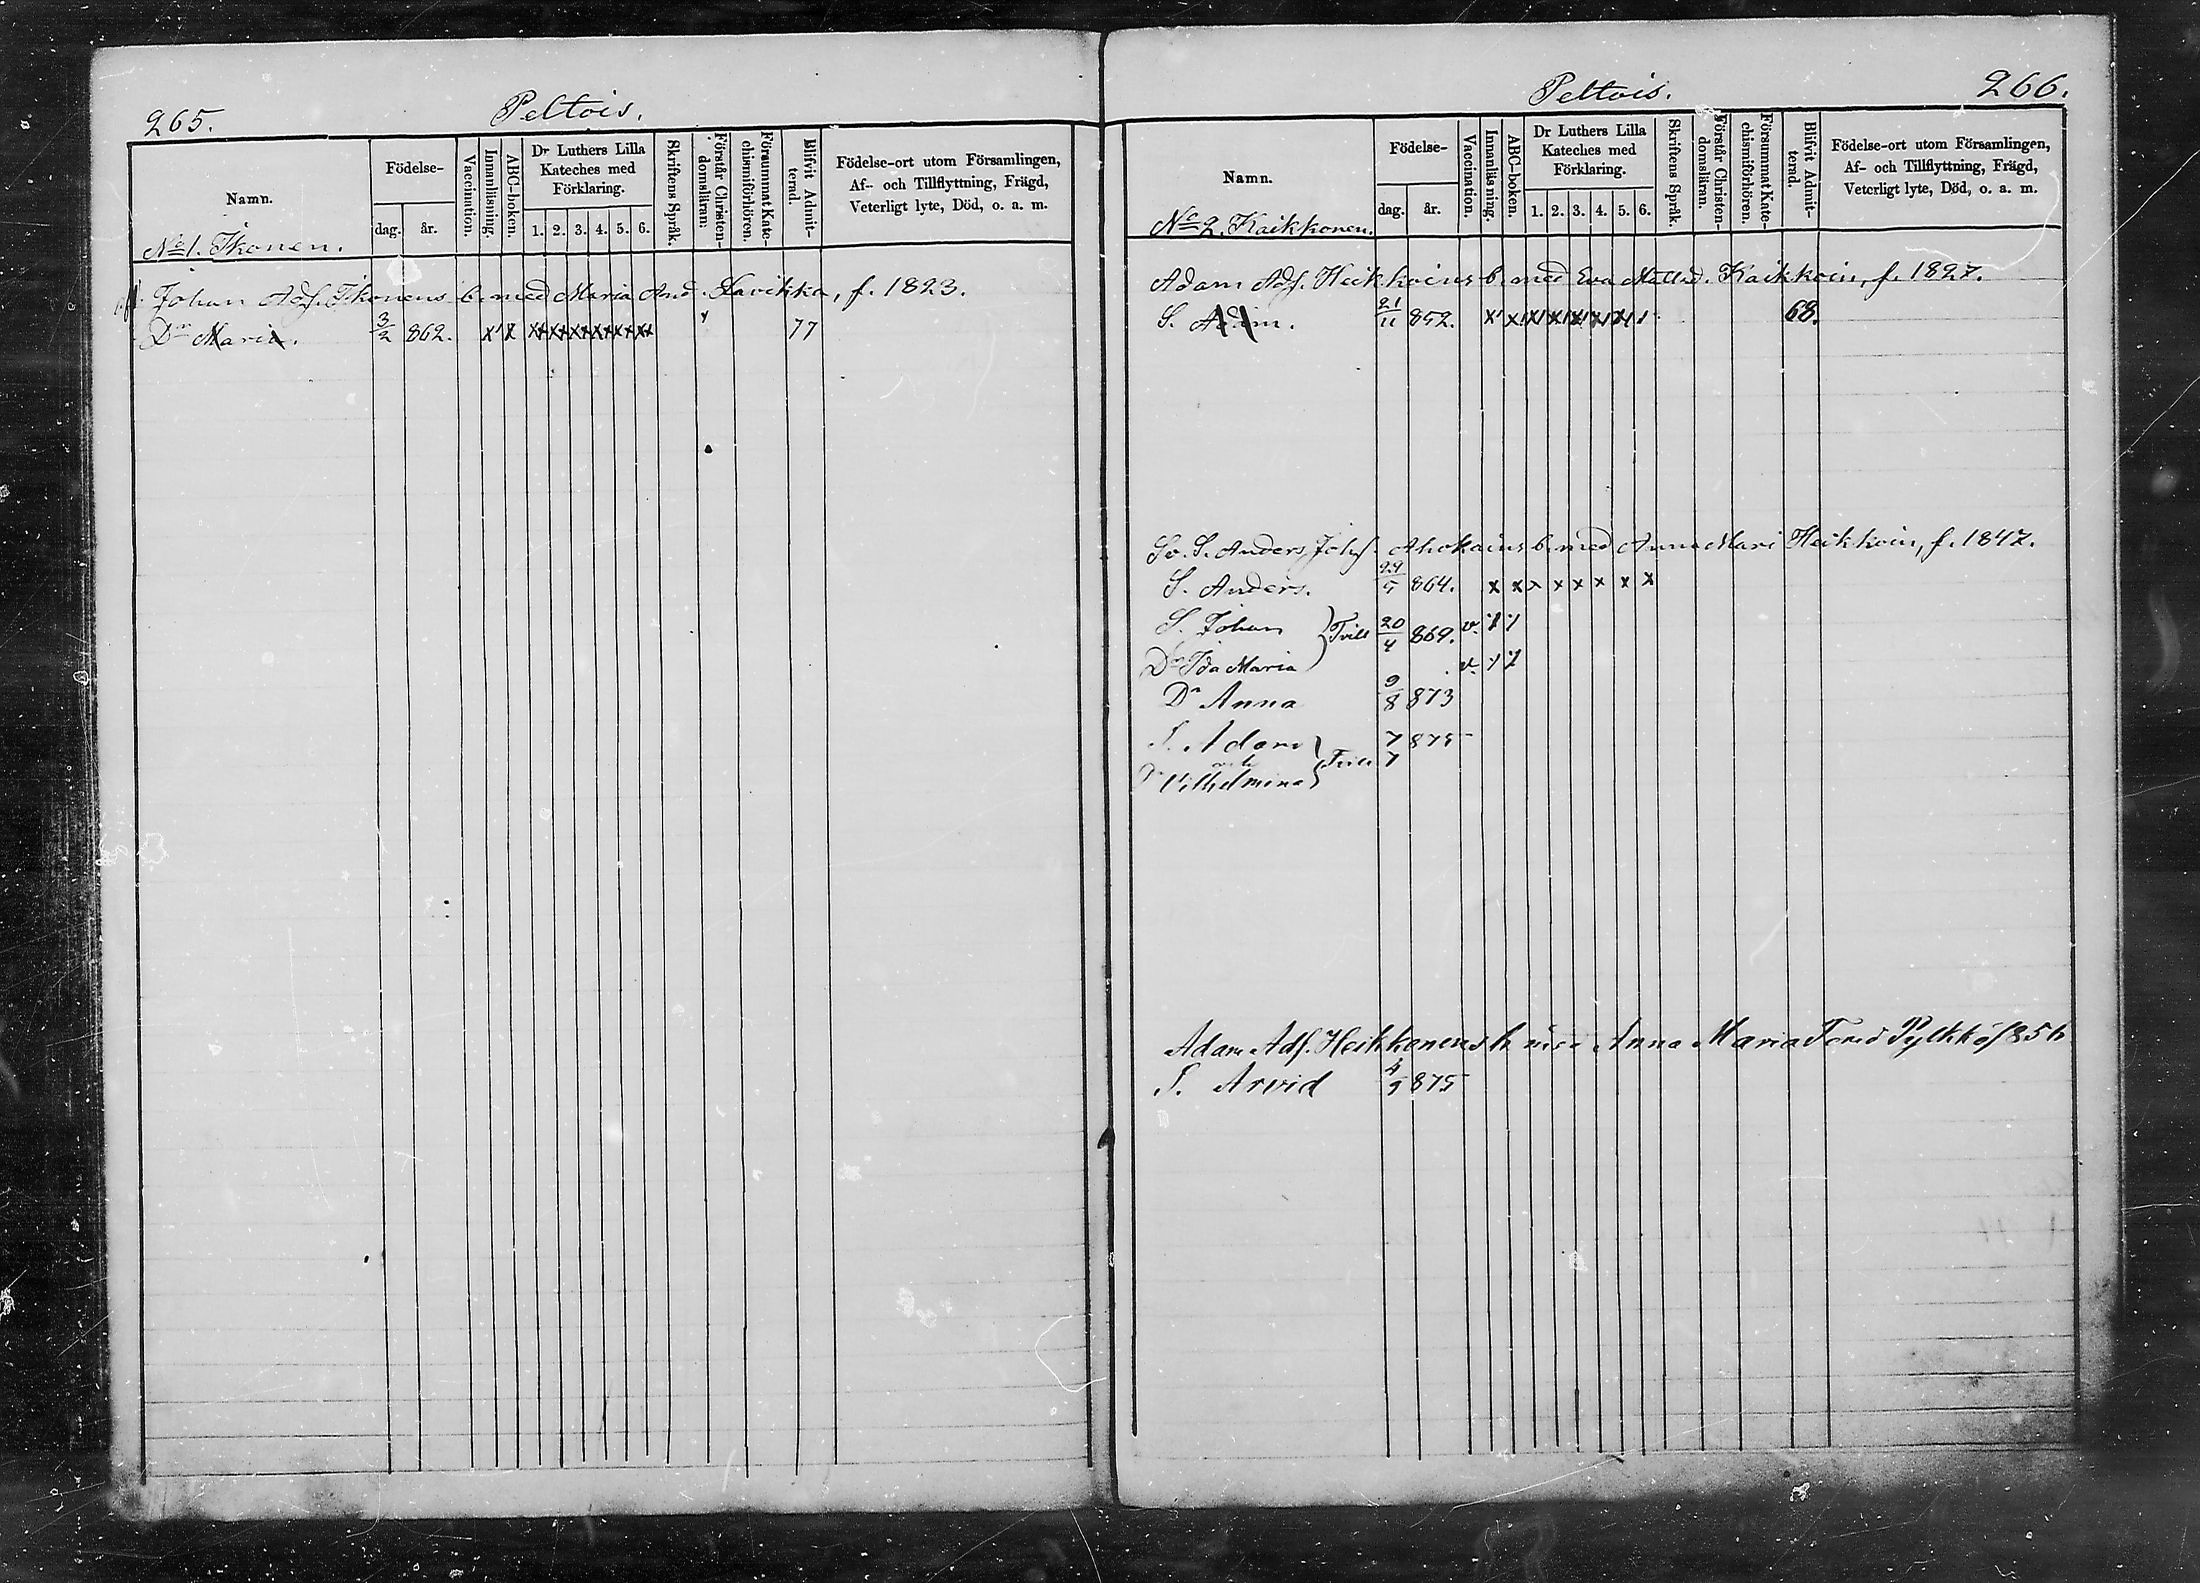 265.
Peltois.
Namn.
Födelse-
dag. år.
Vaccination.
Innanläsning.
ABC-boken.
Dr Luthers Lilla Kateches med Förklaring.
1. 2. 3. 4. 5. 6.
Skriftens Språk.
Förstår Christendomsläran.
Försummat Katechismiförhören.
Blifvit Admitterad.
Födelse-ort utom Församlingen,
Af- och Tillflyttning, Frägd,
Veterligt lyte, Död, o. a. m.
No 1. Ikonen.
Johan Adf. Ikonens b. med Maria And. Lavikka, f. 1823.
Dr Maria. 3/2 862. 77
Peltois.
266.
Namn.
Födelse-
dag. år.
Vaccination.
Innanläsning.
ABC-boken.
Dr Luthers Lilla
Kateches med
Förklaring.
1. 2. 3. 4. 5. 6.
Skriftens Språk.
Förstår Christendomsläran.
Försummat Katechismiförhören.
Blifvit Admitterad.
Födelse-ort utom Församlingen,
Af- och Tillflyttning, Frägd,
Veterligt lyte, Död, o. a. m.
No 2. Kaikkonen.
Adam Adf. Heikkoins b. med Eva Mattsd. Kaikkoin, f. 1827.
S. Adam. 21/11 852. x x x x x x x x 68.
S. Anders Johs. Ahokains b. med Anna Mari Heikkoin, f. 1842.
S. Anders. 29/5 864. x x x x x x x x
S. Johan } Tvill 20/4 869. v.
Dr Ida Maria v.
Dr Anna 9/8 873
S. Adam } Tvill 7/7 875
och
Dr Vilhelmina
Adam Adf. Heikkonens b med Anna Maria Pylkkö f 856
S. Arvid 4/9 875